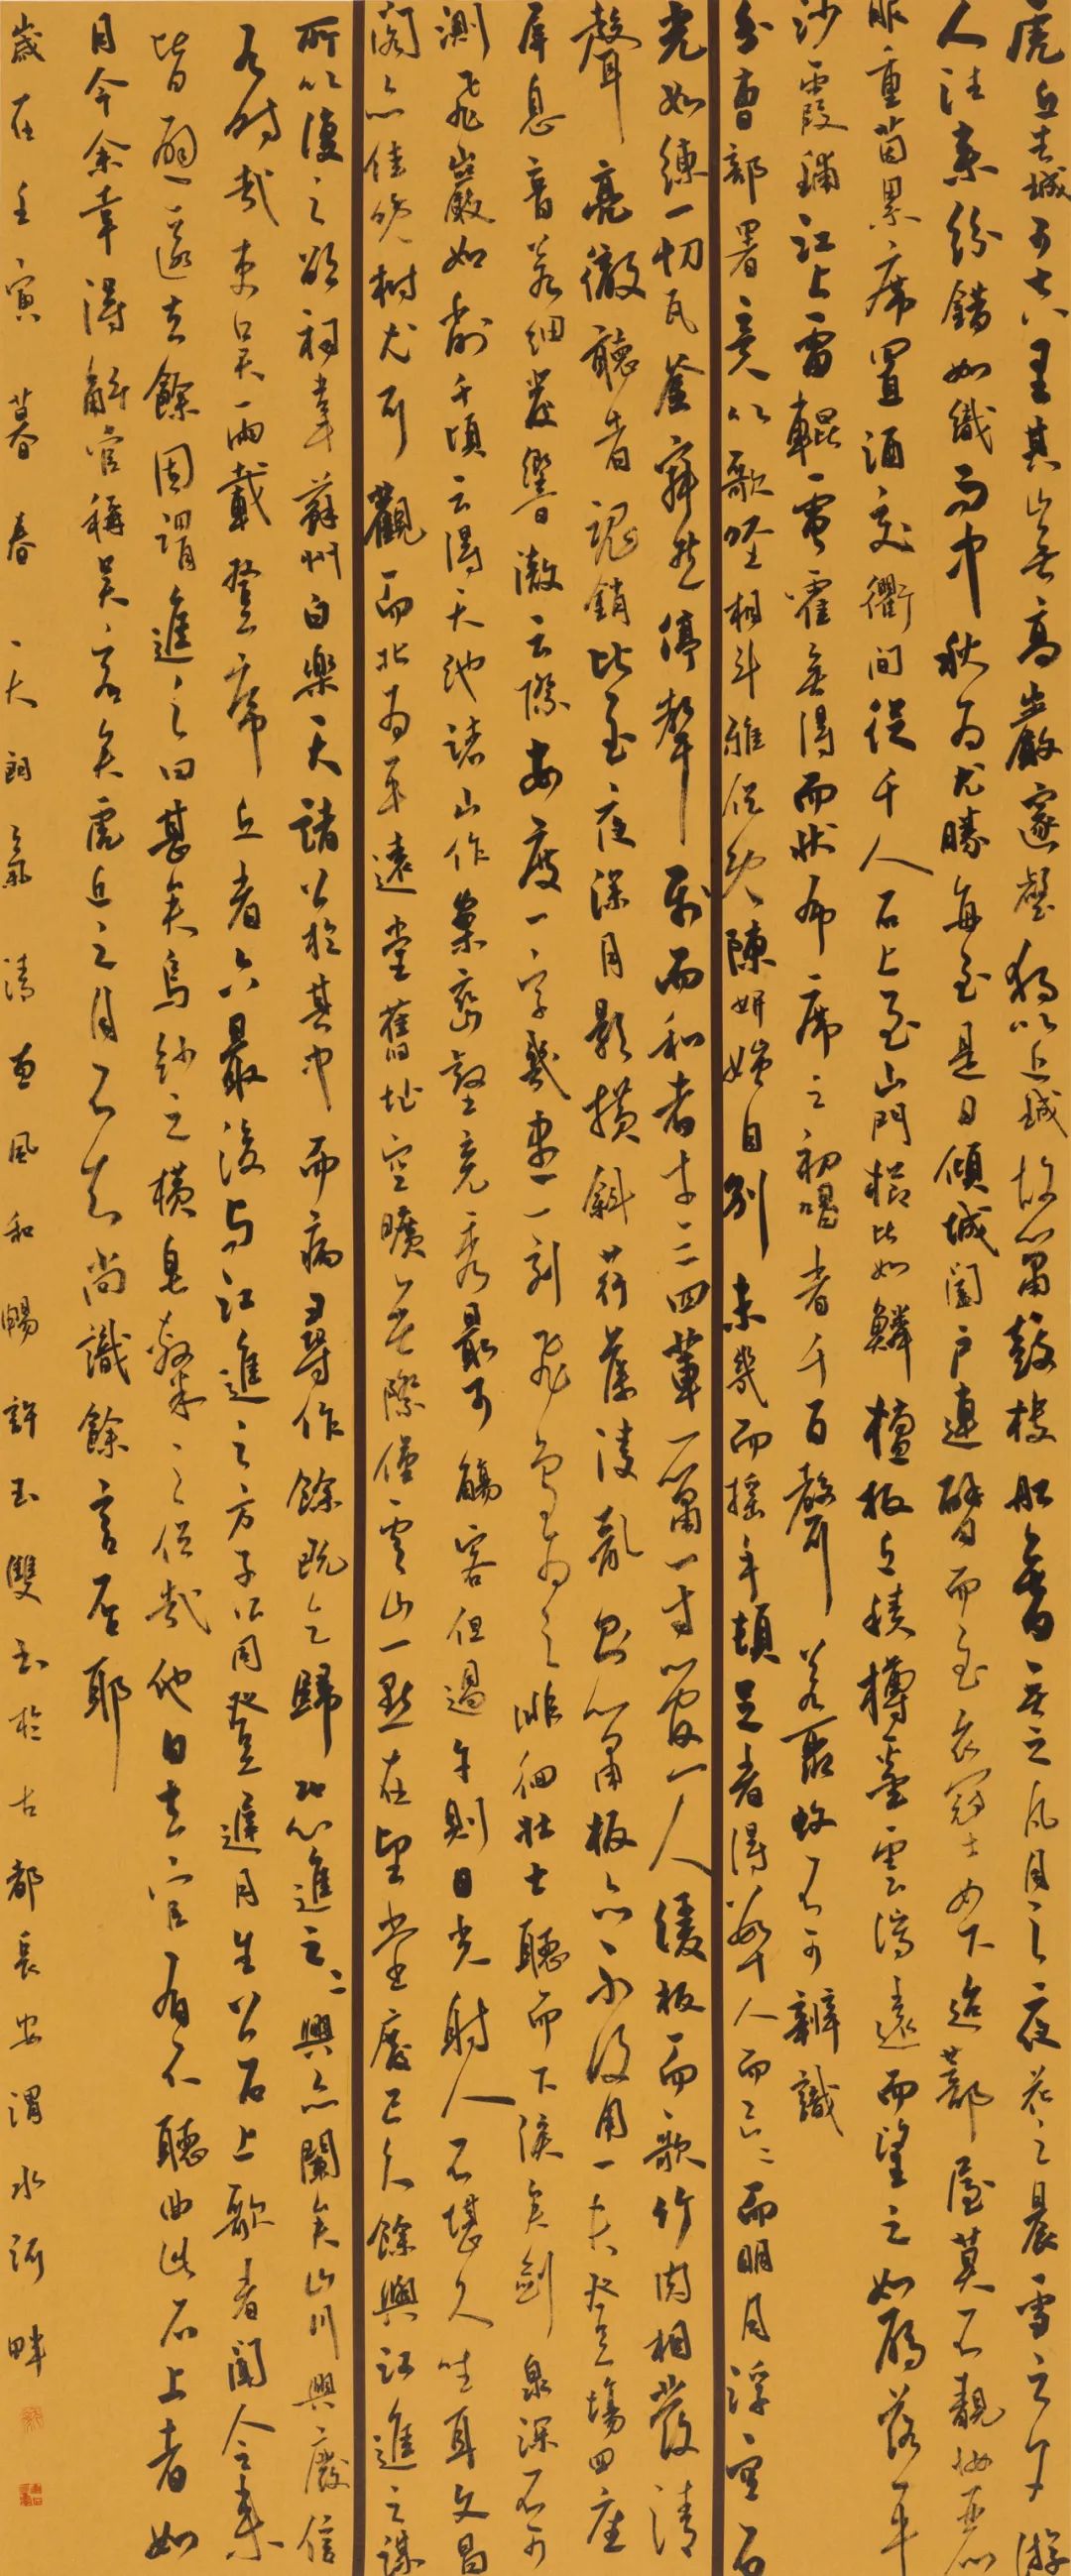 虎丘去城可七八里其山無高巖邃壑獨以近城故簫鼓樓船無日無之凡月之夜花之晨雪之夕游
人往來紛錯如織而中秋為尤勝每至是日傾城闔戶連臂而至衣冠士女下迨蔀屋莫不靚妝麗服
重茵累席置酒交衢間從千人石上至山門櫛比如鱗檀板丘積樽罍雲瀉遠而望之如雁落平
沙霞鋪江上雷輥電霍無得而狀布席之初唱者千百聲若聚蚊不可辨識
分曹部署竟以歌喉相鬥雅俗既陳妍媸自別未幾而搖手頓足者得數十人而已已而明月浮空石
光如練一切瓦釜寂然停聲屬而和者才三四輩一簫一寸管一人緩板而歌竹肉相發清
聲亮徹聽者魂銷比至夜深月影橫斜荇藻凌亂則簫板亦不復用一夫登場四座
屏息音若細髮響徹雲際每度一字幾盡一刻飛鳥為之徘徊壯士聽而下淚矣劍泉深不可
測飛巖如削千頃雲得天池諸山作案巒壑競秀最可觴客但過午則日光射人不堪久坐耳文昌
閣亦佳晚樹尤可觀而北為平遠堂舊址空曠無際僅雲山一點在望堂廢已久餘與江進之謀
所以復之欲祠韋蘇州白樂天諸公於其中而病尋作餘既乞歸恐進之之興亦闌矣山川興廢信
有時哉吏吳兩載登虎丘者六最後與江進之方子公同登遲月生公石上歌者聞令來
皆避匿去餘因謂進之曰甚矣烏紗之橫皂隸之俗哉他日去官有不聽曲此石上者如
月今余幸得解官稱吳客矣虎丘之月不知尚識餘言否耶
歲在壬寅暮春天朗氣清惠風和暢許玉雙書於古都長安渭水河畔